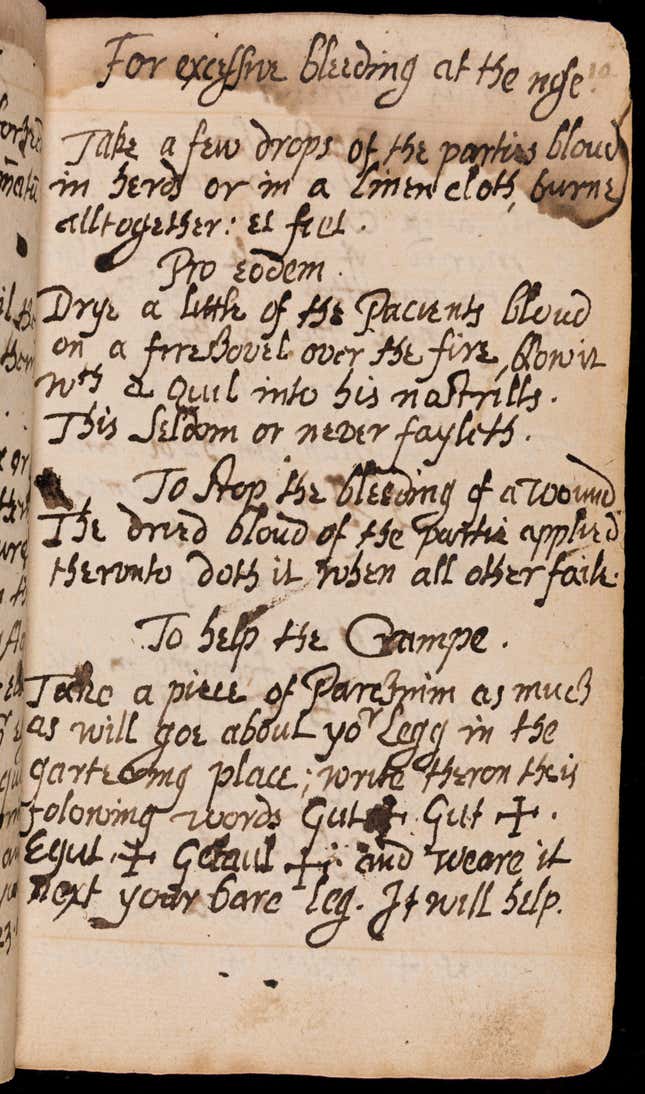 For excessive bleeding at the nose.
Take a few drops of the parties bloud
in herds or in a linen cloth, burne
alltogether: et fiet.
Pro eodem.
Drye a little of the Pacients bloud
on a fireshovel over the fire, blow it
wth a Quil into his nastrills.
This seldom or never fayleth.
To stop the bleeding of a wound
The dried bloud of the partie applied
therunto doth it when all other faile.
To help the Crampe.
Take a piece of Parchmim as much
as will goe about yor Legg in the
gartering place; write theron theis
folowing words Gut ✢ Gut ✢.
Egut ✢ ✢ and weare it
next your bare leg. It will help.